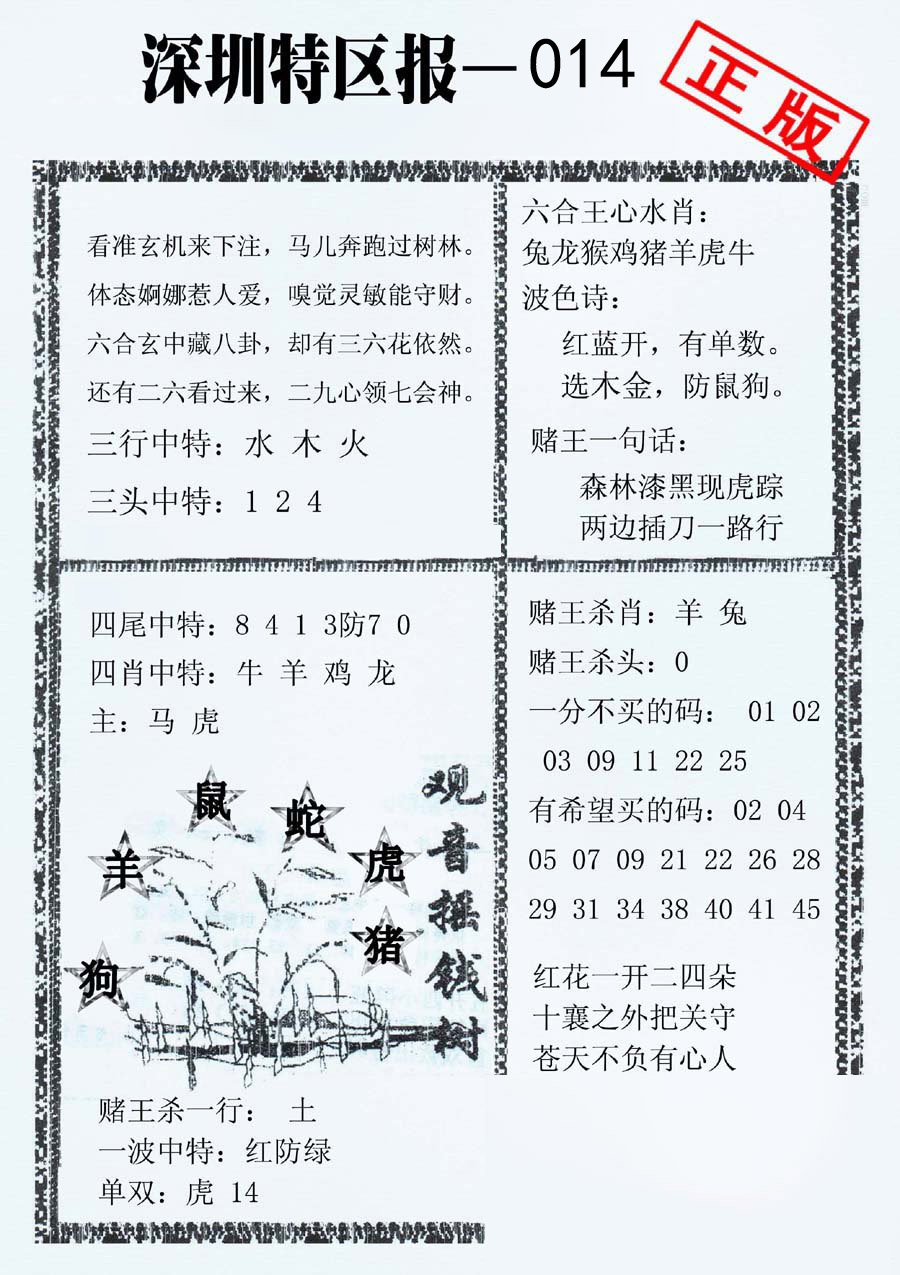 深圳特区报—014
正版
看准玄机来下注，马儿奔跑过树林。
体态婀娜惹人爱，嗅觉灵敏能守财。
六合玄中藏八卦，却有三六花依然。
还有二六看过来，二九心领七会神。
三行中特：水 木 火
三头中特：1 2 4
六合王心水肖：
兔龙猴鸡猪羊虎牛
波色诗：
红蓝开，有单数。
选木金，防鼠狗。
赌王一句话：
森林漆黑现虎踪
两边插刀一路行
四尾中特：8 4 1 3防7 0
四肖中特：牛 羊 鸡 龙
主：马 虎
鼠
蛇
羊
虎
猪
狗
观音摇钱树
赌王杀一行： 土
一波中特：红防绿
单双：虎 14
赌王杀肖：羊 兔
赌王杀头：0
一分不买的码： 01 02
03 09 11 22 25
有希望买的码：02 04
05 07 09 21 22 26 28
29 31 34 38 40 41 45
红花一开二四朵
十襄之外把关守
苍天不负有心人